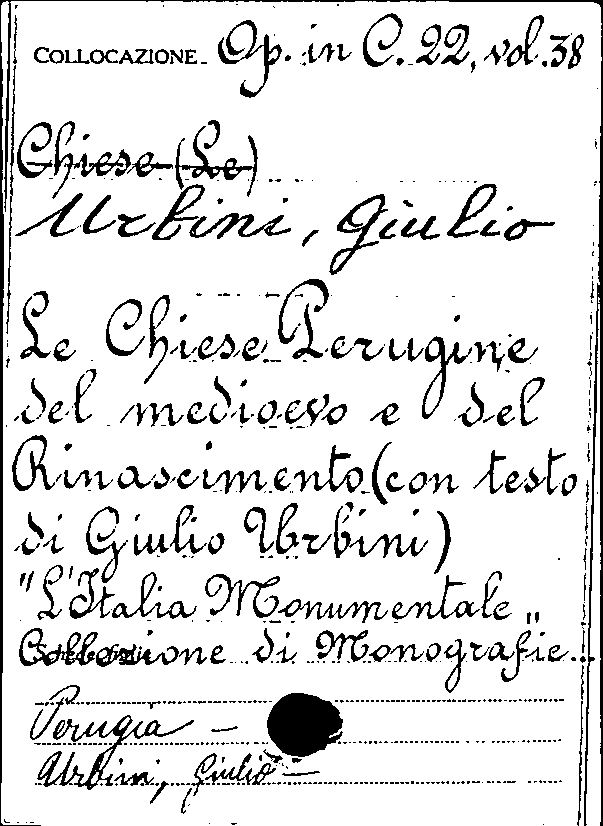 COLLOCAZIONE Op. in C. 22, vol. 38
Chiese (Le)
Urbini, Giulio
Le Chiese Perugine
del medioevo e del
Rinascimento (con testo
di Giulio Urbini)
"L'Italia Monumentale„
Collezione di Monografie...
Perugia —
Urbini, Giulio —